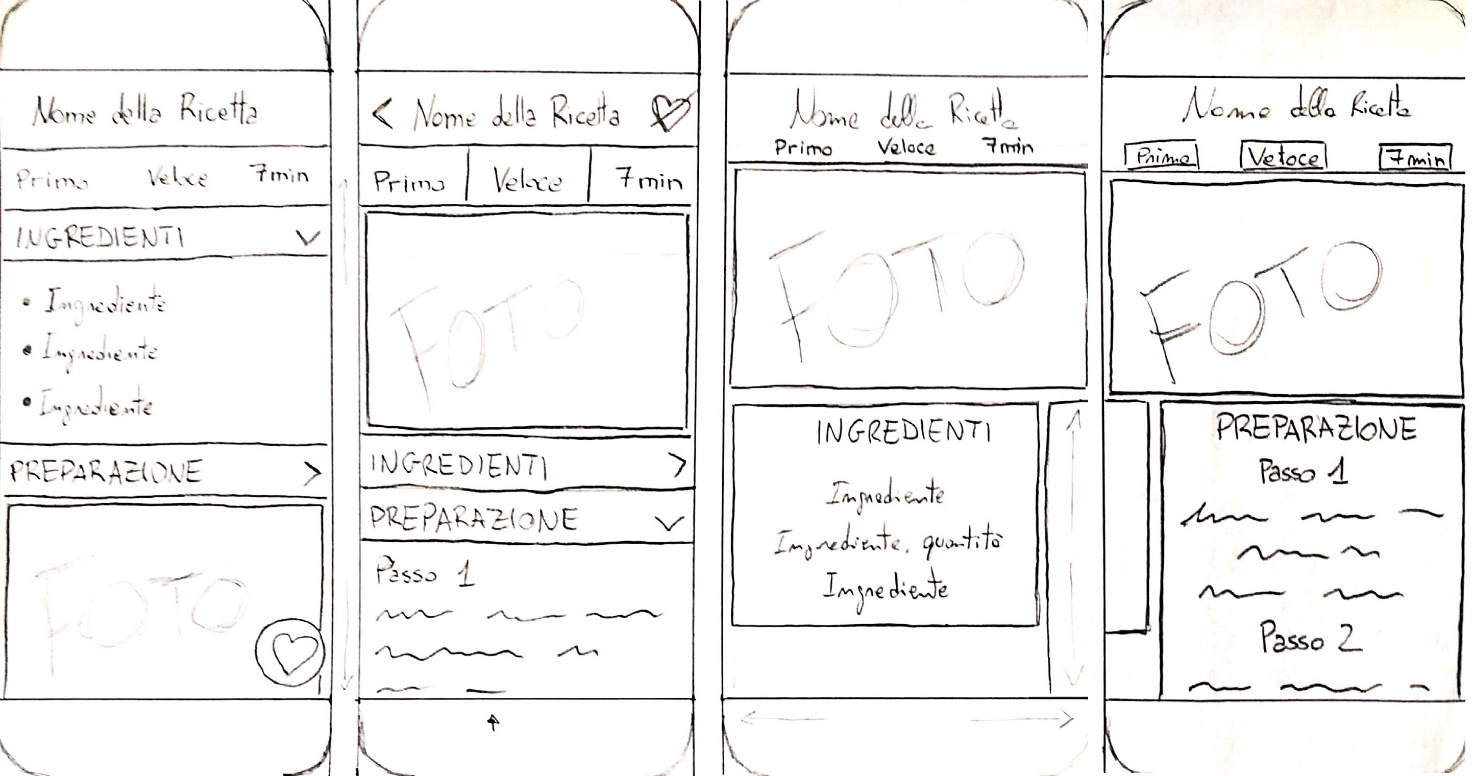 Nome della Ricetta
Primo Veloce 7min
INGREDIENTI
• Ingrediente
• Ingrediente
• Ingrediente
PREPARAZIONE
FOTO
Nome della Ricetta
Primo Veloce 7min
FOTO
INGREDIENTI
PREPARAZIONE
Passo 1
Nome della Ricetta
Primo Veloce 7min
FOTO
INGREDIENTI
Ingrediente
Ingrediente, quantità
Ingrediente
Nome della Ricetta
Primo Veloce 7min
FOTO
PREPARAZIONE
Passo 1
Passo 2